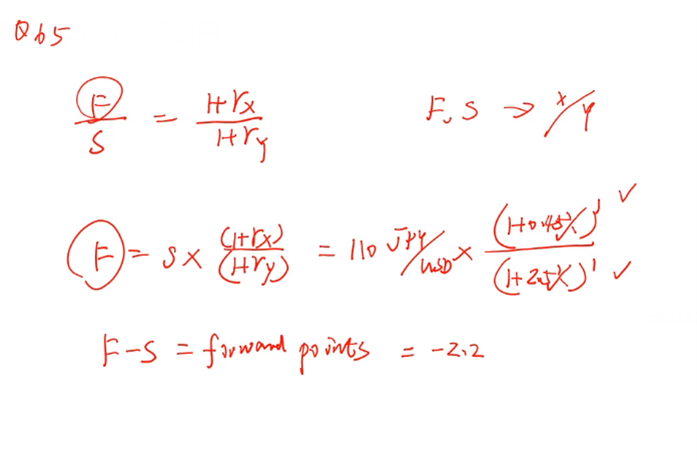 Q65
F/S = (1+rx)/(1+ry)    F, S → x/y
F = S × (1+rx)/(1+ry) = 110 JPY/USD × (1+0.45%)¹ ✓/(1+2.5%)¹ ✓
F-S = forward points = -2.2